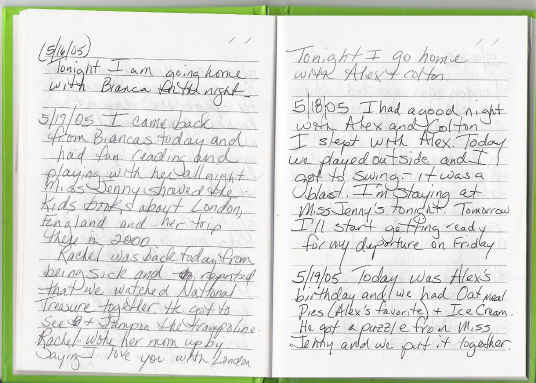 (5/16/05)
Tonight I am going home
with Bianca tonight.
5/17/05 I came back
from Biancas today and
had fun reading and
playing with her all night
Miss Jenny showed the
Kids books about London,
England and her trip
there in 2000
Rachel was back today from
being sick and reported
that we watched National
Treasure together He got to
see & Jump on the trampoline.
Rachel woke her mum up by
saying I love you with London
Tonight I go home
with Alex + colton
5/18/05 I had a good night
with Alex and Colton
I slept with Alex. Today
we played outside and I
got to swing - it was a
blast. I'm staying at
Miss Jenny's tonight. Tomorrow
I'll start getting ready
for my departure on Friday
5/19/05 Today was Alex's
birthday and we had Oatmeal
Pies (Alex's favorite) + Ice Cream.
He got a puzzle from Miss
Jenny and we put it together.